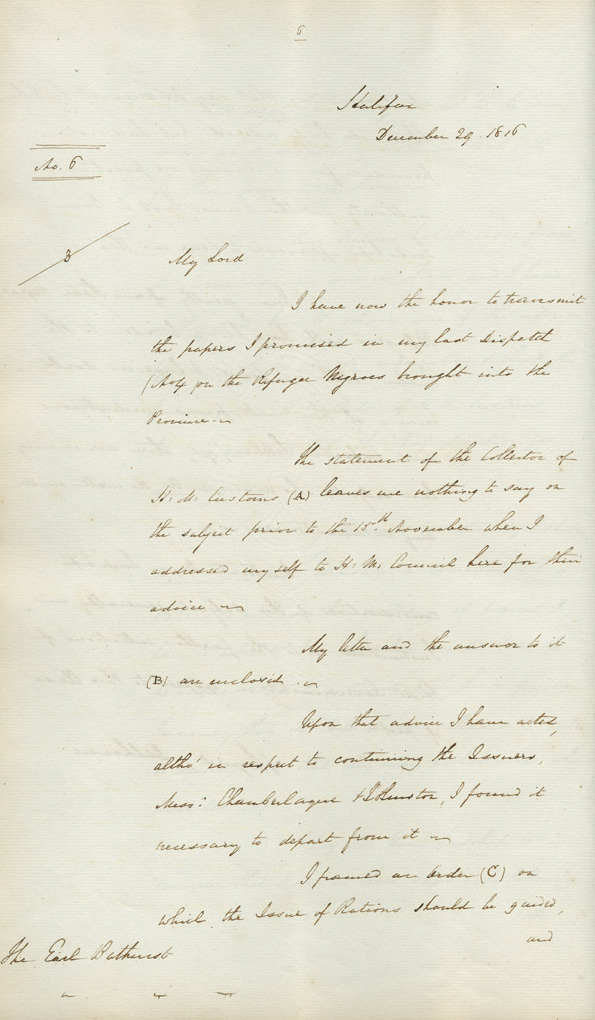 6
Halifax
December 29. 1816
No. 6
3
My Lord
I have now the honor to transmit
the papers I promised in my last Dispatch
(No 4 on the Refugee Negroes brought into the
Province.
The statement of the Collector of
H: M: Customs (A) leaves me nothing to say on
the subject prior to the 15th November when I
addressed myself to H: M: Council here for their
advice
My letter and the answer to it
(B) are enclosed.
Upon that advice I have acted,
altho' in respect to continuing the Issuers,
Messrs: Chamberlayne & Johnston, I found it
necessary to depart from it
I framed an Order (C) on
which the Issue of Rations should be guided,
and
The Earl Bathurst